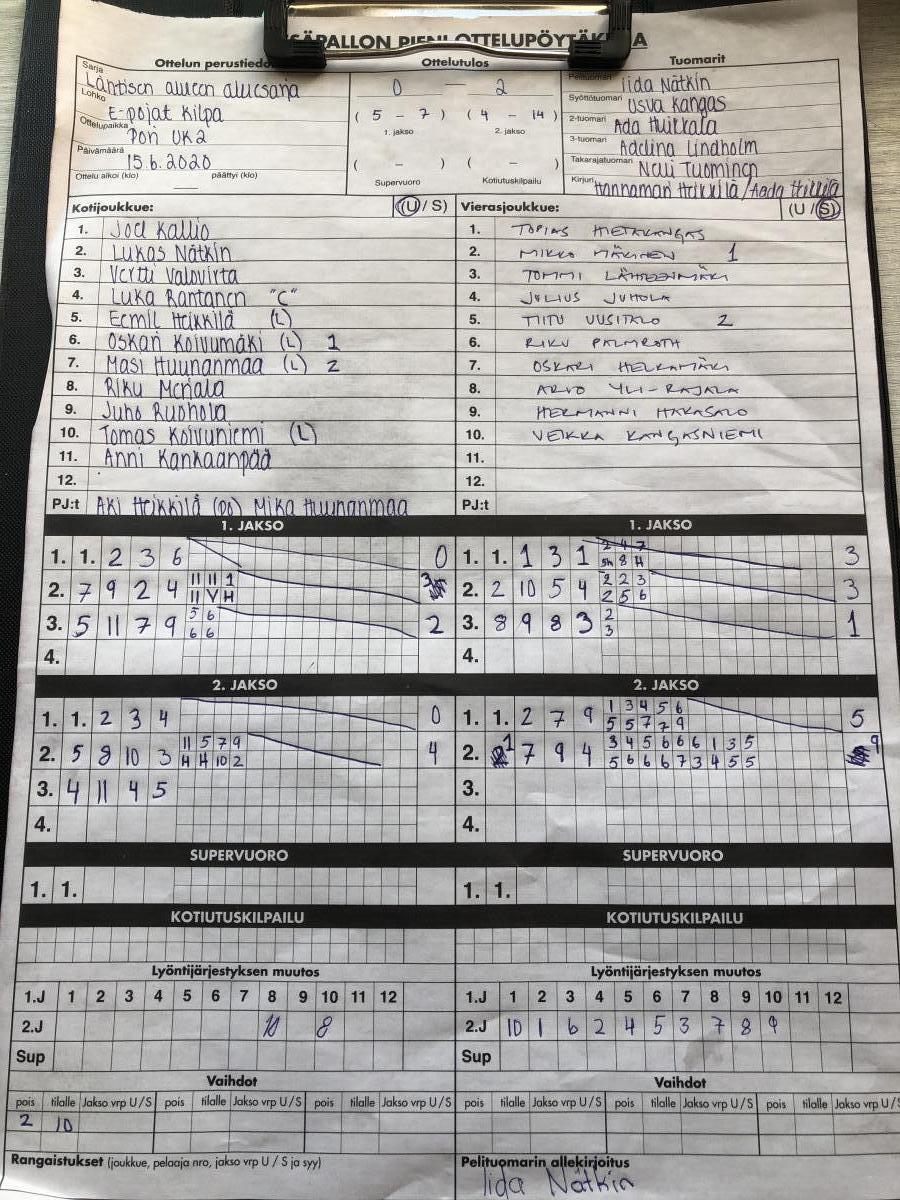 SÄPALLON PIENI OTTELUPÖYTÄK A
Ottelun perustiedo
Sarja Läntisen alueen aluesarja
Lohko E-pojat Kilpa
Ottelupaikka Pori UK2
Päivämäärä 15.6.2020
Ottelu alkoi (klo) — päättyi (klo)
Ottelutulos
0 — 2
( 5 - 7 ) ( 4 - 14 )
1. jakso 2. jakso
( - ) ( - )
Supervuoro Kotiutuskilpailu
Tuomarit
Pelituomari Iida Nätkin
Syöttötuomari Usva Kangas
2-tuomari Ada Huikkala
3-tuomari Adelina Lindholm
Takarajatuomari Neui Tuominen
Kirjuri Hannamari Heikkilä/Aada Heikkilä
Kotijoukkue: (U / S)
1. Joel Kallio
2. Lukas Nätkin
3. Vertti Valovirta
4. Luka Rantanen "C"
5. Eemil Heikkilä (L)
6. Oskari Koivumäki (L) 1
7. Masi Huunanmaa (L) 2
8. Riku Merjala
9. Juho Ruohola
10. Tomas Koivuniemi (L)
11. Anni Kankaanpää
12.
PJ:t Aki Heikkilä (po) Mika Huunanmaa
Vierasjoukkue: (U / S)
1. TOPIAS HIETAKANGAS
2. MIKKO MÄKINEN 1
3. TOMMI LÄHTEENMÄKI
4. JULIUS JUHOLA
5. TIITU UUSITALO 2
6. RIKU PALMROTH
7. OSKARI HELKAMÄKI
8. ARVO YLI-RAJALA
9. HERMANNI HAKASALO
10. VEIKKA KANGASNIEMI
11.
12.
PJ:t
1. JAKSO
1. 1. 2 3 6 0
2. 7 9 2 4 11 11 1 3
11 V H
3. 5 11 7 9 5 6 2
6 6
4.
1. JAKSO
1. 1. 1 3 1 2 4 7 3
5h 8 H
2. 2 10 5 4 2 2 3 3
2 5 6
3. 8 9 8 3 2 1
3
4.
2. JAKSO
1. 1. 2 3 4 0
2. 5 8 10 3 11 5 7 9 4
H H 10 2
3. 4 11 4 5
4.
2. JAKSO
1. 1. 2 7 9 1 3 4 5 6 5
5 5 7 7 9
2. 1 7 9 4 3 4 5 6 6 6 1 3 5 9
5 6 6 6 7 3 4 5 5
3.
4.
SUPERVUORO
1. 1.
SUPERVUORO
1. 1.
KOTIUTUSKILPAILU
KOTIUTUSKILPAILU
Lyöntijärjestyksen muutos
1.J 1 2 3 4 5 6 7 8 9 10 11 12
2.J 10 8
Sup
Lyöntijärjestyksen muutos
1.J 1 2 3 4 5 6 7 8 9 10 11 12
2.J 10 1 6 2 4 5 3 7 8 9
Sup
Vaihdot
pois tilalle Jakso vrp U / S pois tilalle Jakso vrp U / S pois tilalle Jakso vrp U / S
2 10
Vaihdot
pois tilalle Jakso vrp U / S pois tilalle Jakso vrp U / S pois tilalle Jakso vrp U / S
Rangaistukset (joukkue, pelaaja nro, jakso vrp U / S ja syy)
Pelituomarin allekirjoitus
Iida Nätkin